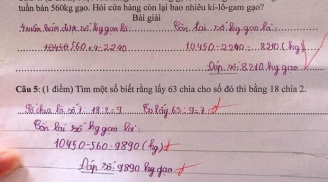 tuần bán 560kg gạo. Hỏi cửa hàng còn lại bao nhiêu ki-lô-gam gạo?
Bài giải
bán được số kg gạo là: Còn lại số kg gạo là:
560 x 4 = 2240 10450 - 2240 = 8210 (kg)
Đáp số: 8210 kg gạo
Câu 5: (1 điểm) Tìm một số biết rằng lấy 63 chia cho số đó thì bằng 18 chia 2.
18 : 2 = 9 63 : 9 = 7
Còn lại số kg gạo là:
10450 - 560 = 9890 (kg)
Đáp số: 9890 kg gạo